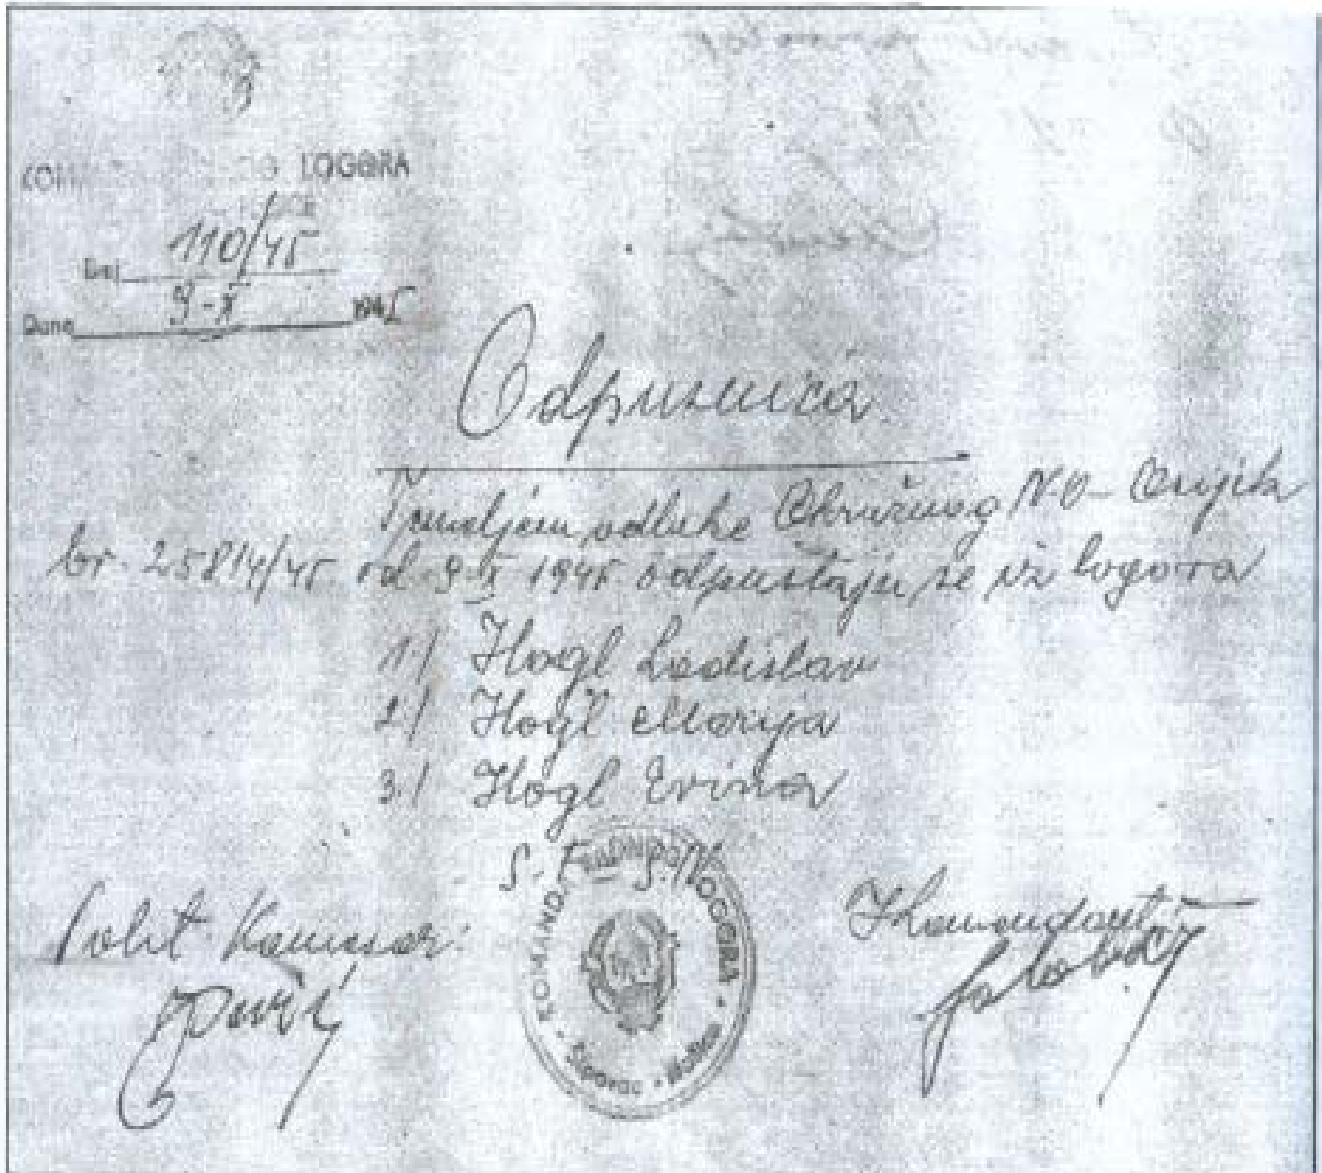 LOGORA
Broj 110/45
Dana 9-X 1945
Odpusnica
Temeljem odluke Okružnog N.O-Osijek
br. 25814/45 od 9-X 1945 odpuštaju se iz logora
1./ Hogl Ladislav
2./ Hogl Marija
3./ Hogl Ervina
S.F.-S.N.
Polit Komesar:
Komandant:
KOMANDA RADNOG LOGORA